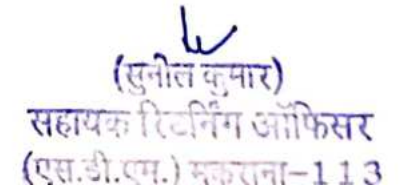 (सुनील कुमार)
सहायक रिटर्निंग ऑफिसर
(एस.डी.एम.) मकराना-113